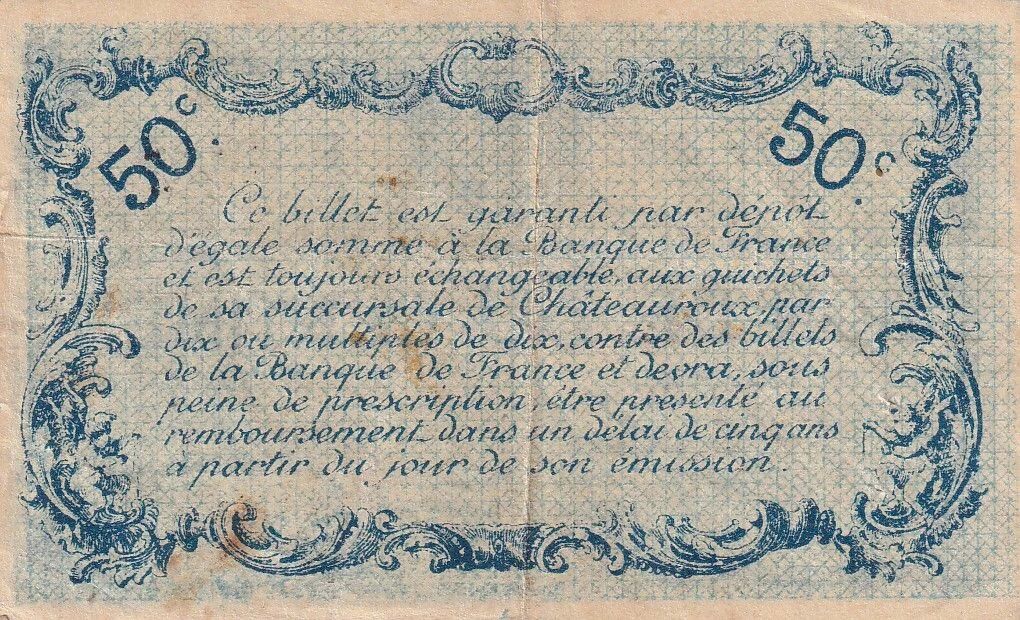 50c.
50c.
Ce billet est garanti par dépôt
d'égale somme à la Banque de France
et est toujours échangeable, aux guichets
de sa succursale de Châteauroux, par
dix ou multiples de dix, contre des billets
de la Banque de France et devra, sous
peine de prescription, être présenté au
remboursement dans un délai de cinq ans
à partir du jour de son émission.